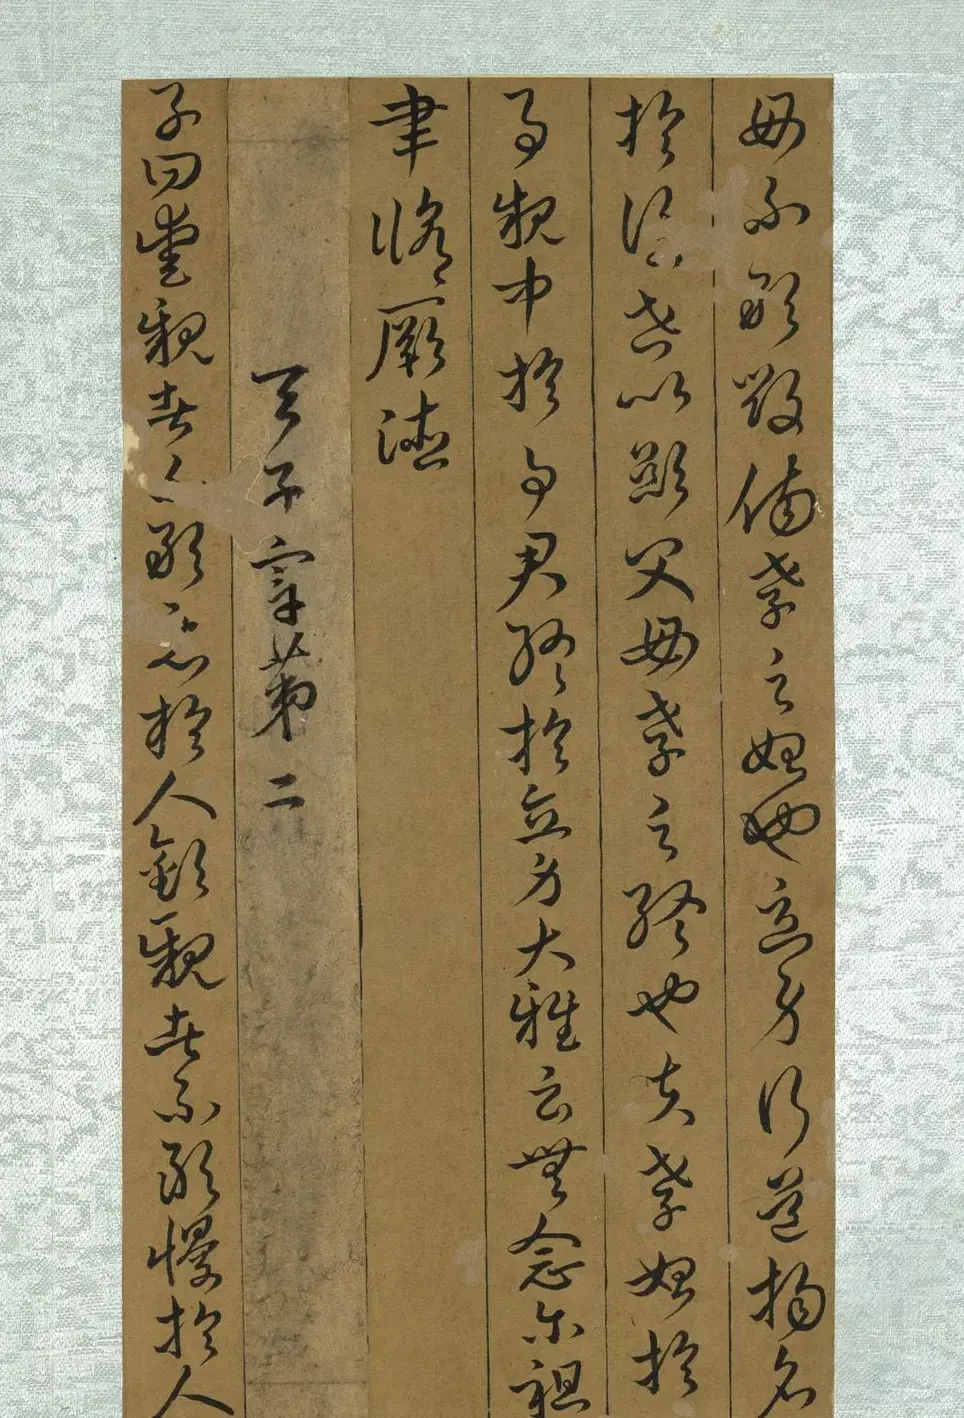 母不敢毀傷孝之始也立身行道揚名
於後世以顯父母孝之終也夫孝始於
事親中於事君終於立身大雅云無念尔祖
聿脩厥德
天子章第二
子曰愛親者不敢惡於人敬親者不敢慢於人